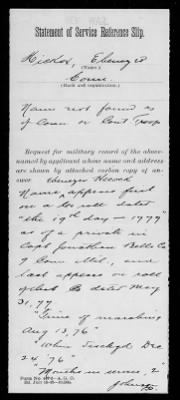 Statement of Service Reference Slip.
Hickox, Ebenezer
(Name.)
Conn.
(Rank and organization.)
Name not found as
of Conn or Cont Troops
Request for military record of the above-
named by applicant whose name and address
are shown by attached carbon copy of
answer Ebenezer
Name appears first
on a roll dated
"the 19th day — 1777"
as of a private in
Capt Jonathan Co
Conn Mil, and
last appears on roll
of that Co dated May
31, 77
"Time of marching
Aug 13, 76"
"When dischgd Dec
24 '76"
"Months in service, 2"